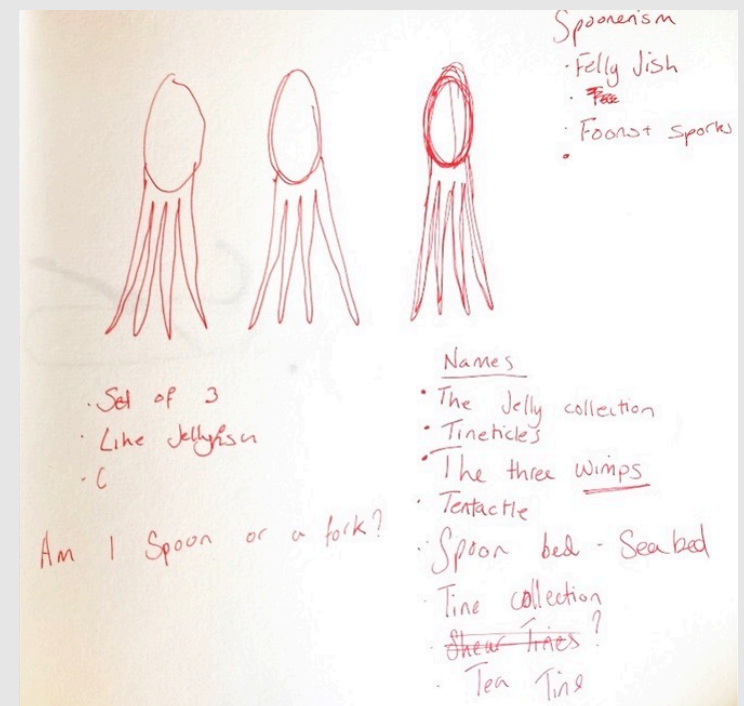 Spoonerism
· Felly Jish
·
· Foonst sporks
·
· Set of 3
· Like Jellyfish
· C
Am I Spoon or a fork?
Names
· The Jelly collection
· Tineticles
· The three wimps
· Tentactle
· Spoon bed - Sea bed
· Tine collection
· Shear Tines?
· Tea Tine